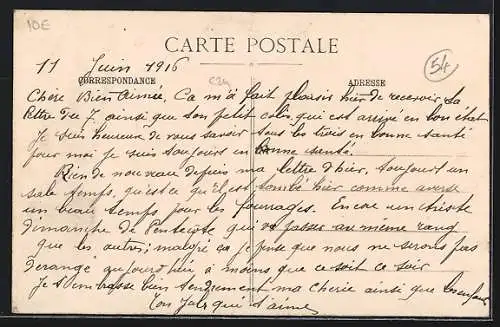 10E
CARTE POSTALE
54
11 Juin 1916
CORRESPONDANCE
C24
ADRESSE
Chère Bien Aimée, Ca m'a fait plaisir hier de recevoir ta
lettre du 7 ainsi que ton petit colis, qui est arrivé en bon état
Je suis heureux de vous savoir tous les trois en bonne santé
pour moi je suis toujours en bonne santé.
Rien de nouveau depuis ma lettre d'hier, toujours un
sale temps, qu'est ce qu'il est tombé hier comme averse
un beau temps pour les fourrages. Encore un triste
dimanche de Pentecote qui va passé au même rang
que les autres; malgré ça je pense que nous ne serons pas
derangé aujourd'hui à moins que ce soit ce soir
Je t'embrasse bien tendrement ma Cherie ainsi que
Ton Jules qui t'aime